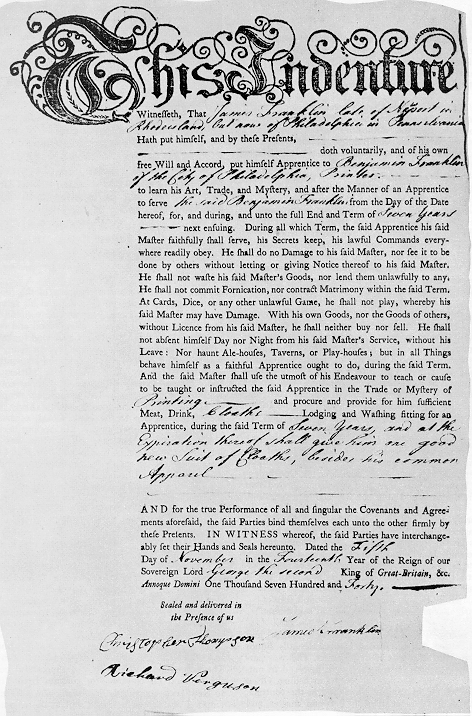 This Indenture
Witnesseth, That James Franklin late of Newport in
Rhodeisland, but now of Philadelphia in Pennsylvania
Hath put himself, and by these Presents,
doth voluntarily, and of his own
free Will and Accord, put himself Apprentice to Benjamin Franklin
of the City of Philadelphia, Printer
to learn his Art, Trade, and Mystery, and after the Manner of an Apprentice
to serve the said Benjamin Franklin from the Day of the Date
hereof, for, and during, and unto the full End and Term of Seven Years
next ensuing. During all which Term, the said Apprentice his said
Master faithfully shall serve, his Secrets keep, his lawful Commands every-
where readily obey. He shall do no Damage to his said Master, nor see it to be
done by others without letting or giving Notice thereof to his said Master.
He shall not waste his said Master's Goods, nor lend them unlawfully to any.
He shall not commit Fornication, nor contract Matrimony within the said Term.
At Cards, Dice, or any other unlawful Game, he shall not play, whereby his
said Master may have Damage. With his own Goods, nor the Goods of others,
without Licence from his said Master, he shall neither buy nor sell. He shall
not absent himself Day nor Night from his said Master's Service, without his
Leave: Nor haunt Ale-houses, Taverns, or Play-houses; but in all Things
behave himself as a faithful Apprentice ought to do, during the said Term.
And the said Master shall use the utmost of his Endeavour to teach or cause
to be taught or instructed the said Apprentice in the Trade or Mystery of
Printing and procure and provide for him sufficient
Meat, Drink, Cloaths Lodging and Washing fitting for an
Apprentice, during the said Term of Seven Years, and at the
Expiration thereof shall give him one good
new Suit of Cloaths, besides his common
Apparel
AND for the true Performance of all and singular the Covenants and Agree-
ments aforesaid, the said Parties bind themselves each unto the other firmly by
these Presents. IN WITNESS whereof, the said Parties have interchange-
ably set their Hands and Seals hereunto. Dated the Fifth
Day of November in the Fourteenth Year of the Reign of our
Sovereign Lord George the second King of Great-Britain, &c.
Annoque Domini One Thousand Seven Hundred and Forty.
Sealed and delivered in
the Presence of us
James Franklin
Christopher Thompson
Richard Verguson